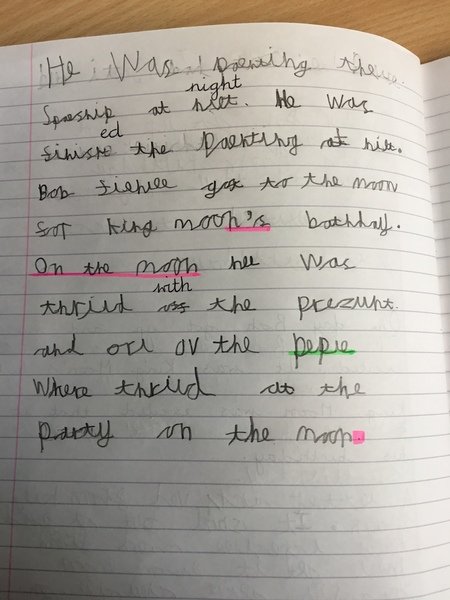 He Was paenting the
night
Spaeship at nilt. He was
ed
finishe the paenting at nilt.
Bob fienlee got to the moon
for king moon's bathday.
On the moon hee was
with
thrild the prezunt.
and orl ov the pepie
Where thrild at the
party on the moon.